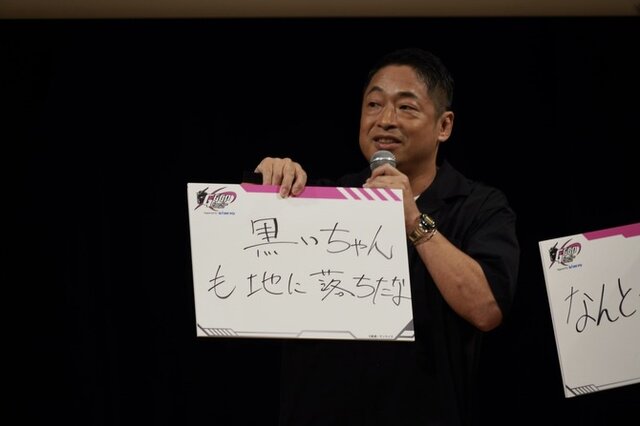 黒いちゃん
も地に落ちたな
なんと